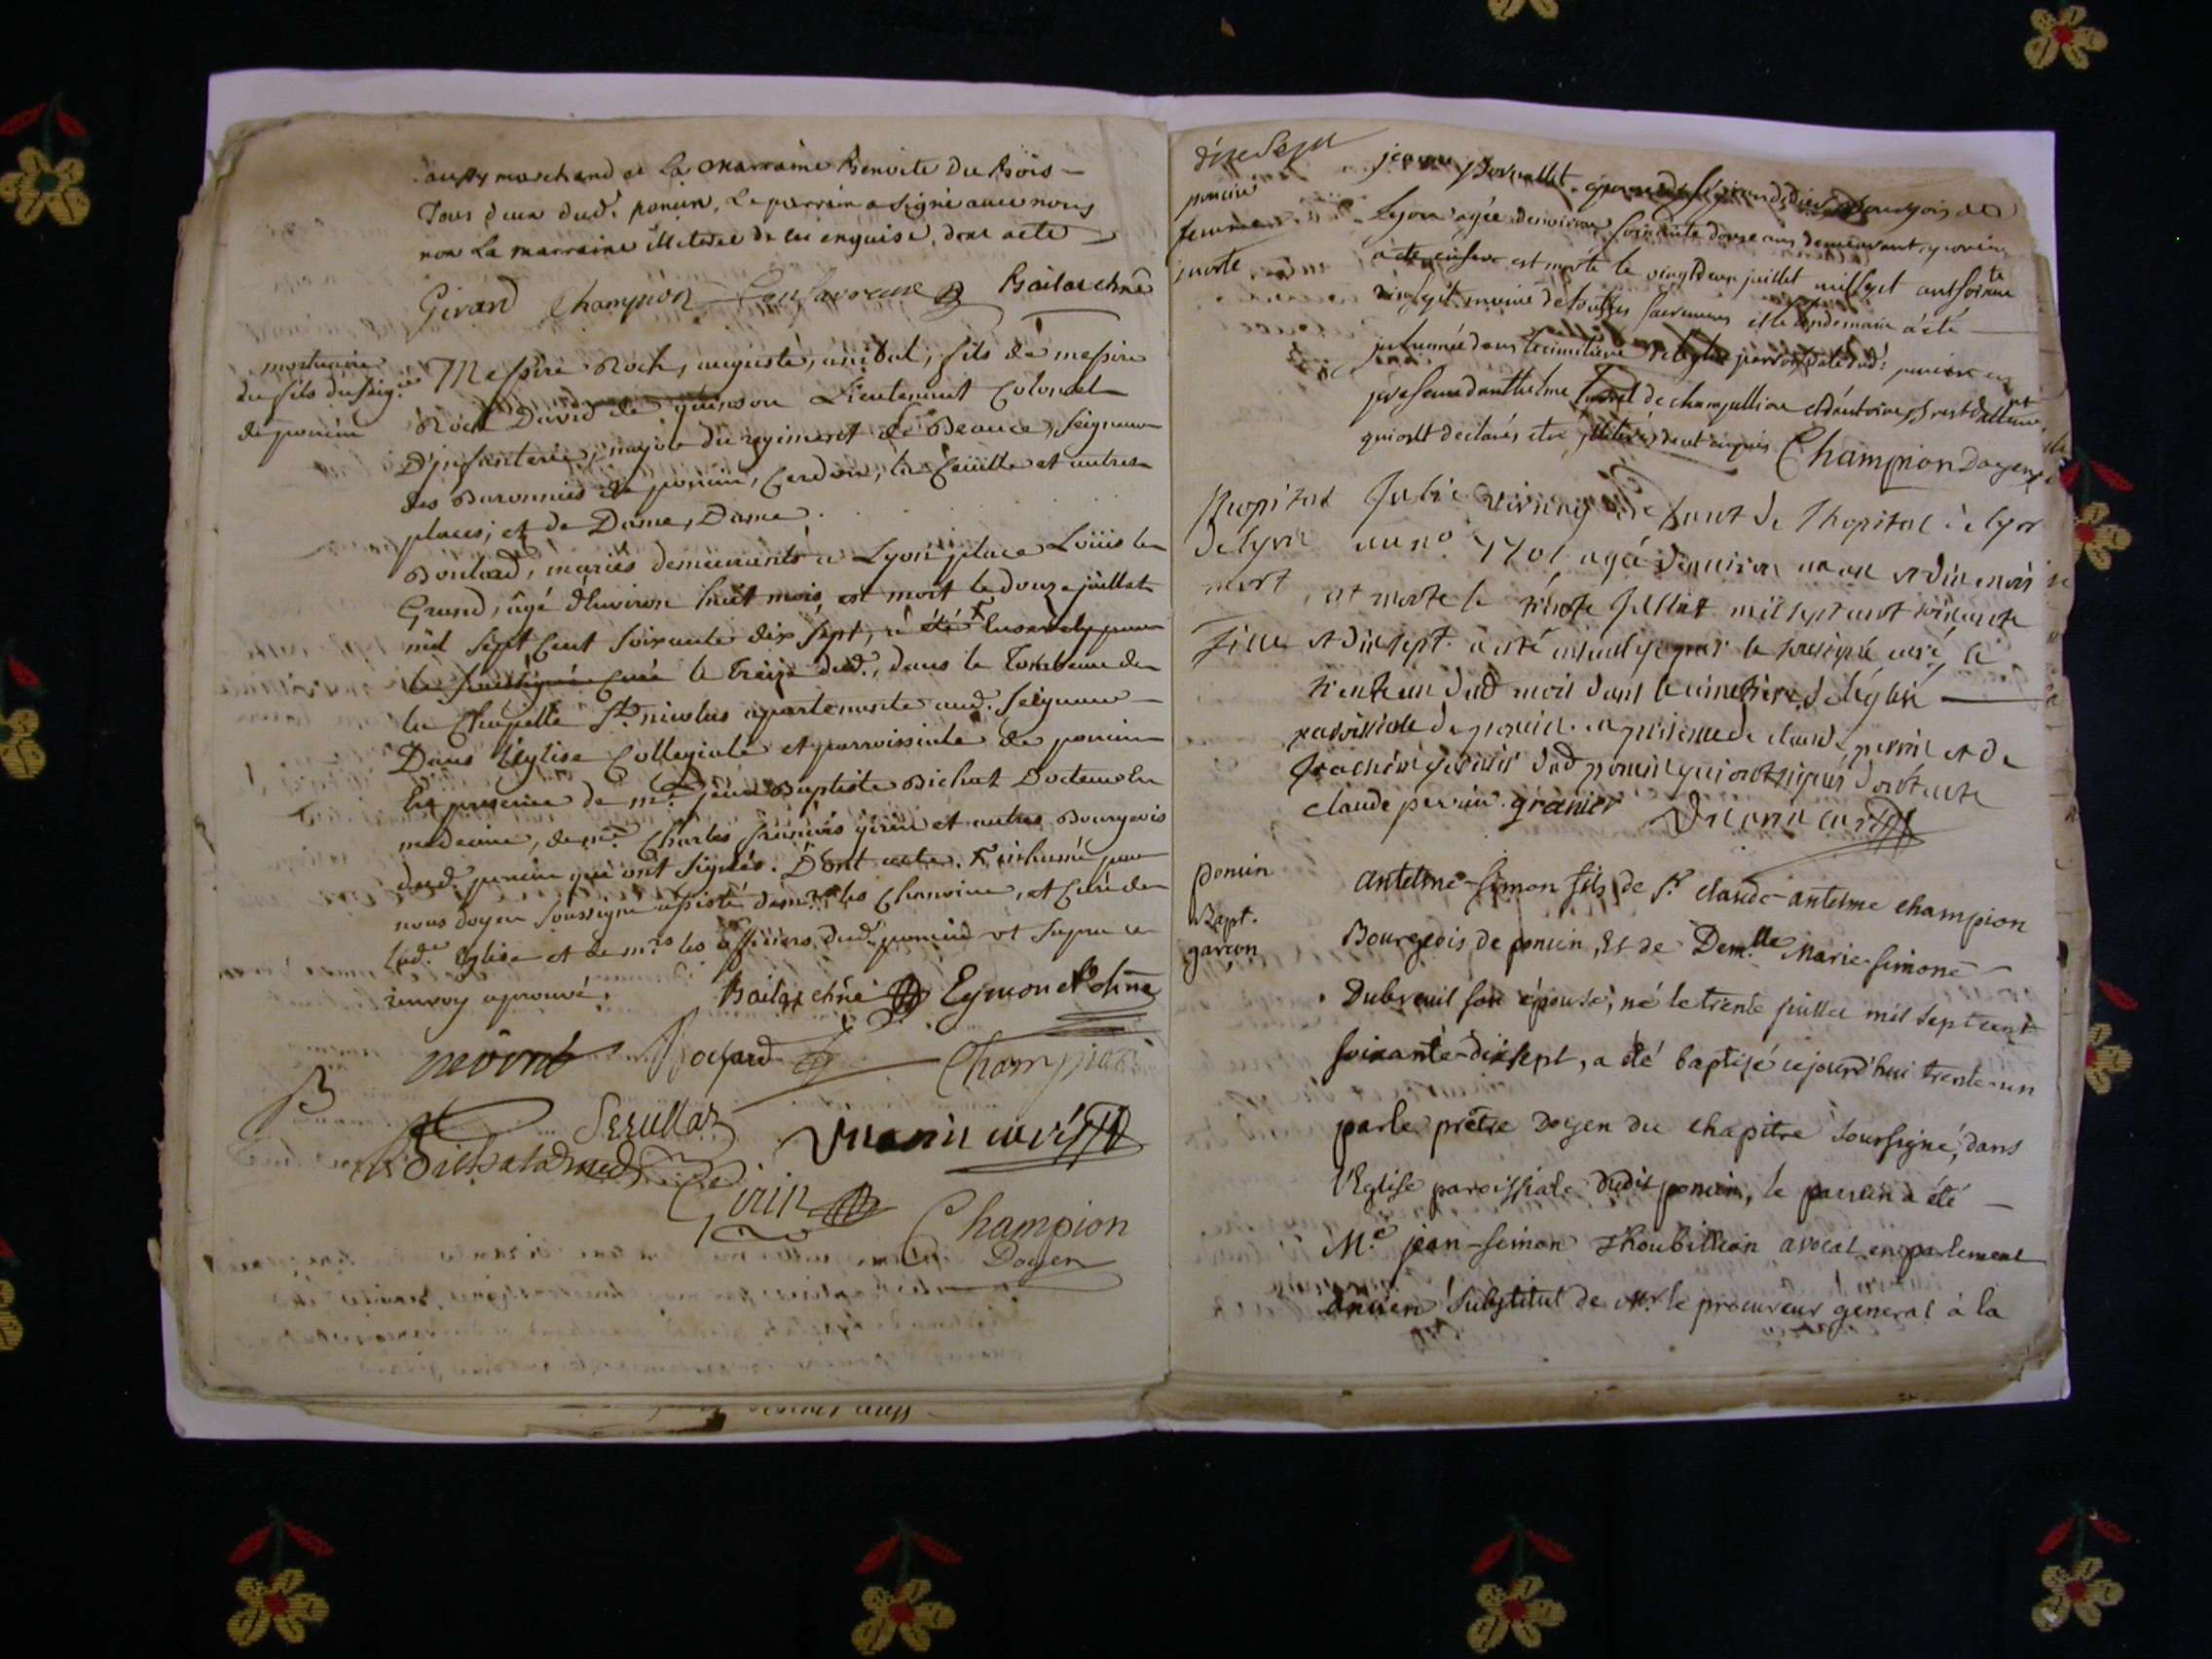 aussy marchand et La Marraine Benoite Du Bois
Tous deux dud. poncin. Le parrain a signé avec nous
non La marraine illiterée de ce enquise, dont acte
Girard Champion Bailat chne
mortuaire
du fils du seigr.
de poncin
Messire Roch, auguste, anibal, fils de messire
Roch David de quinson Lieutenant Colonel
D'jnfanterie, major du regiment de Beauce, Seigneur
des Baronnies de poncin, Cerdon, la Cueille et autres
places; et de Dame, Dame
Boulard, mariés demeurants a Lyon place Loüis le
Grand, âgé d'Environ huit mois, est mort le douze juillet
mil sept Cent soixante dix sept, a été
le soussigné Curé le treize dud., dans le Tombeau de
la Chapelle St. nicolas apartenante aud. Seigneur
Dans l'Eglise Collegiale et parroissiale de poncin
En presence de mr. jean Baptiste Bichat Docteur En
medecine, de mr. Charles françois girin et autres Bourgeois
dud. poncin qui ont signés. Dont acte. inhumé par
nous doyen soussigné assisté de mrs. les Chanoine, et Curé de
lad. Eglise et de mrs les officiers dud. poncin ut supra ce
renvoy aprouvé.
Bailat chne Eymonet chne
Bochard Champion
Bichat dmed
Girin
Champion
Doyen
dixsept
poncin
femme
morte
jeanne
Lyon agée d'environ soixante douze ans demeurant a poncin
a été est morte le vingtdeux juillet mil sept cent soixante
dixsept munie de touttes sacremens et le lendemain a été
jnhumée dans le cimetiere de l'eglise parroissiale dud. poncin en
presence d'anthelme de champollion et d'antoine
qui ont declarés etre illiterés de ce enquis Champion Doyen
hopital
de lyon
mort
Fille
Julie enfant de l'hopital de lyon
au no. 1701 agée d'environ un an et dix mois
est morte le trente Juillet mil sept cent soixante
et dixsept. a esté par le soussigné curé, le
trente un dud mois dans le cimetiere de l'église
paroissiale de poncin en presence de claude perrin et de
dud poncin qui ont signés dont acte
claude perrin granier
poncin
Bapt.
garçon
antelme-simon fils de Sr. claude-antelme champion
Bourgeois de poncin, Et de Dem.lle Marie-simone
Dubreuil son épouse, né le trente juillet mil sept cent
soixante-dixsept, a été baptisé cejourd'hui trente-un
par le prêtre Doyen du chapitre soussigné, dans
l'Eglise paroissiale dudit poncin, le parrein a été
Me. jean-simon avocat en parlement
ancien substitut de Mr. le procureur general à la